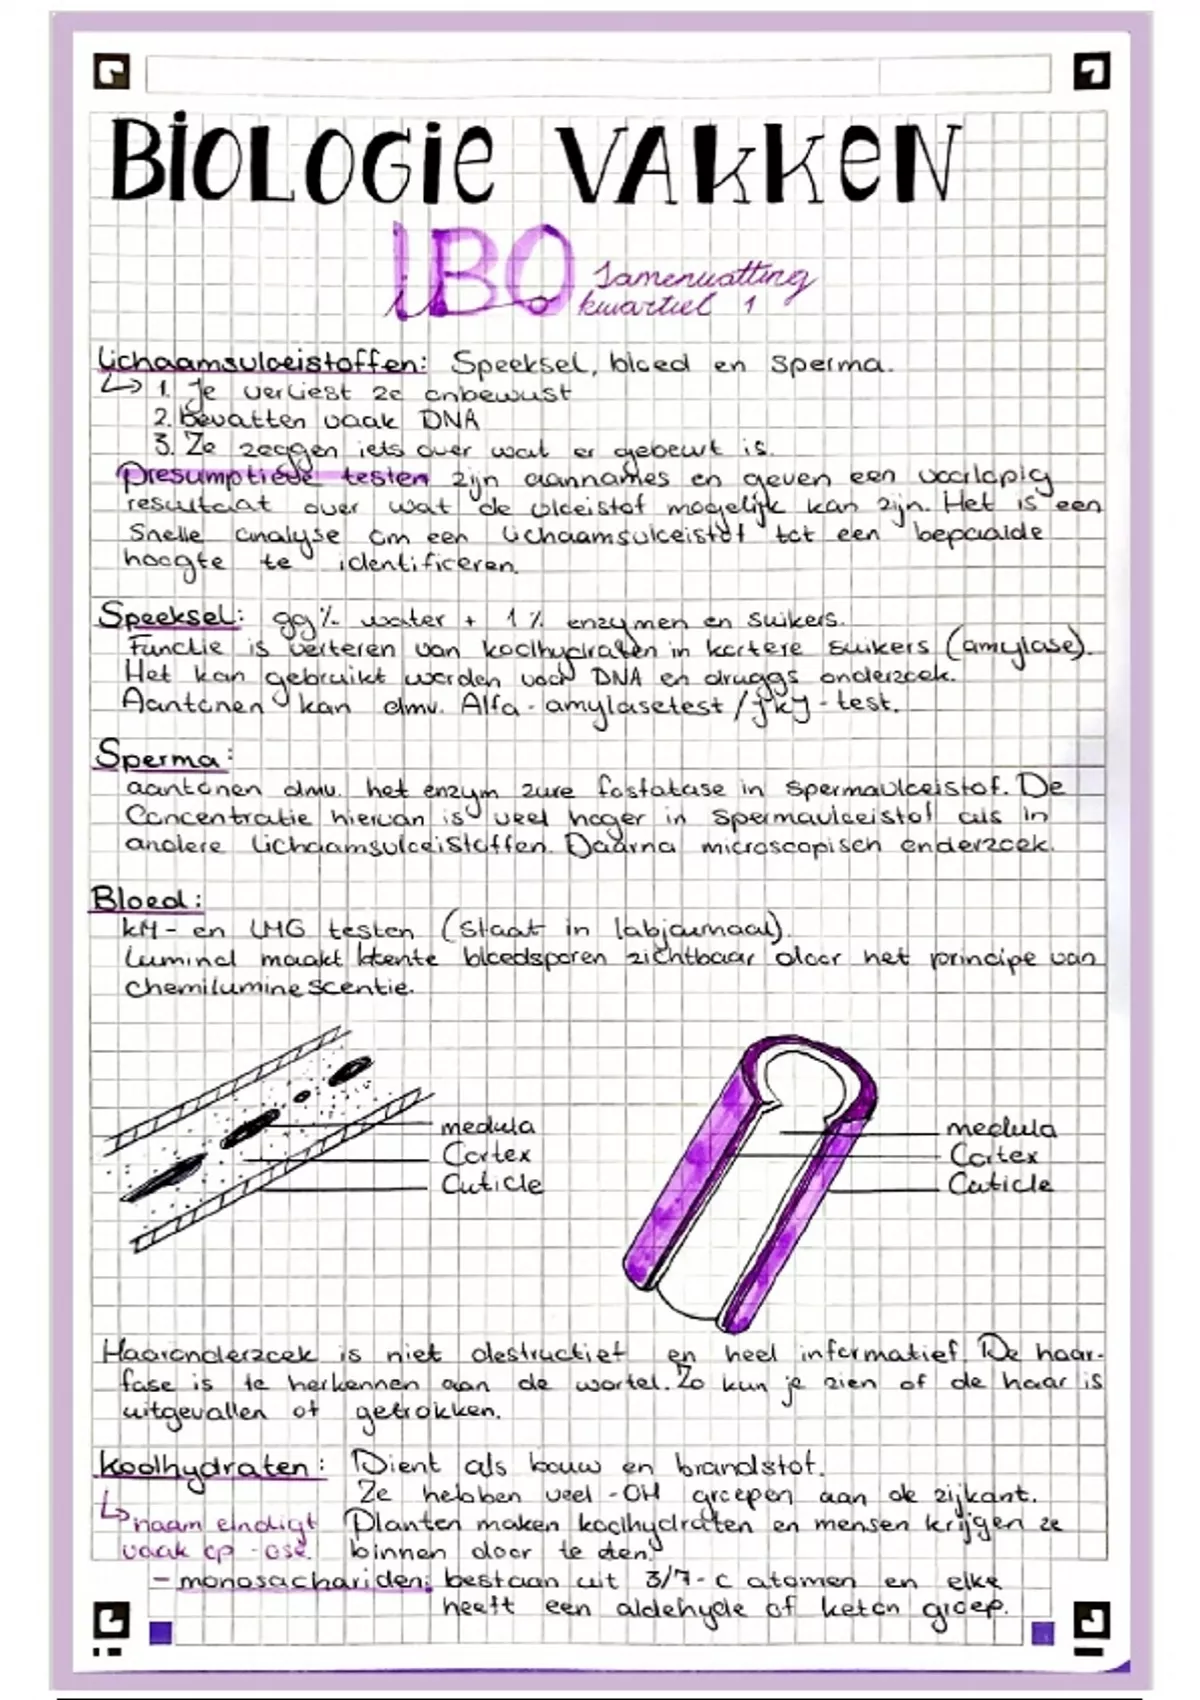 BIOLOGIE VAKKEN
IBO Samenvatting
kwartiel 1
Lichaamsvloeistoffen: Speeksel, bloed en sperma.
↳ 1. Je verliest ze onbewust
2. bevatten vaak DNA
3. Ze zeggen iets over wat er gebeurt is.
Presumptieve testen zijn aannames en geven een voorlopig
resultaat over wat de vloeistof mogelijk kan zijn. Het is een
Snelle analyse om een lichaamsvloeistof tot een bepaalde
hoogte te identificeren.
Speeksel: 99% water + 1% enzymen en suikers.
Functie is verteren van koolhydraten in kortere suikers (amylase).
Het kan gebruikt worden voor DNA en druggs onderzoek.
Aantonen kan dmv. Alfa-amylasetest / fky-test.
Sperma:
aantonen dmv. het enzym zure fosfatase in spermavloeistof. De
Concentratie hiervan is veel hoger in spermavloeistof als in
andere lichaamsvloeistoffen. Daarna microscopisch onderzoek.
Bloed:
KM- en LMG testen (staat in labjournaal).
Luminol maakt latente bloedsporen zichtbaar door het principe van
chemiluminescentie.
medula
Cortex
Cuticle
medula
Cortex
Cuticle
Haaronderzoek is niet destructief en heel informatief. De haar-
fase is te herkennen aan de wortel. Zo kun je zien of de haar is
uitgevallen of getrokken.
Koolhydraten: Dient als bouw en brandstof.
Ze hebben veel -OH groepen aan de zijkant.
↳ naam eindigt Planten maken koolhydraten en mensen krijgen ze
vaak op -ose. binnen door te eten.
- monosachariden: bestaan uit 3/7-C atomen en elke
heeft een aldehyde of keton groep.